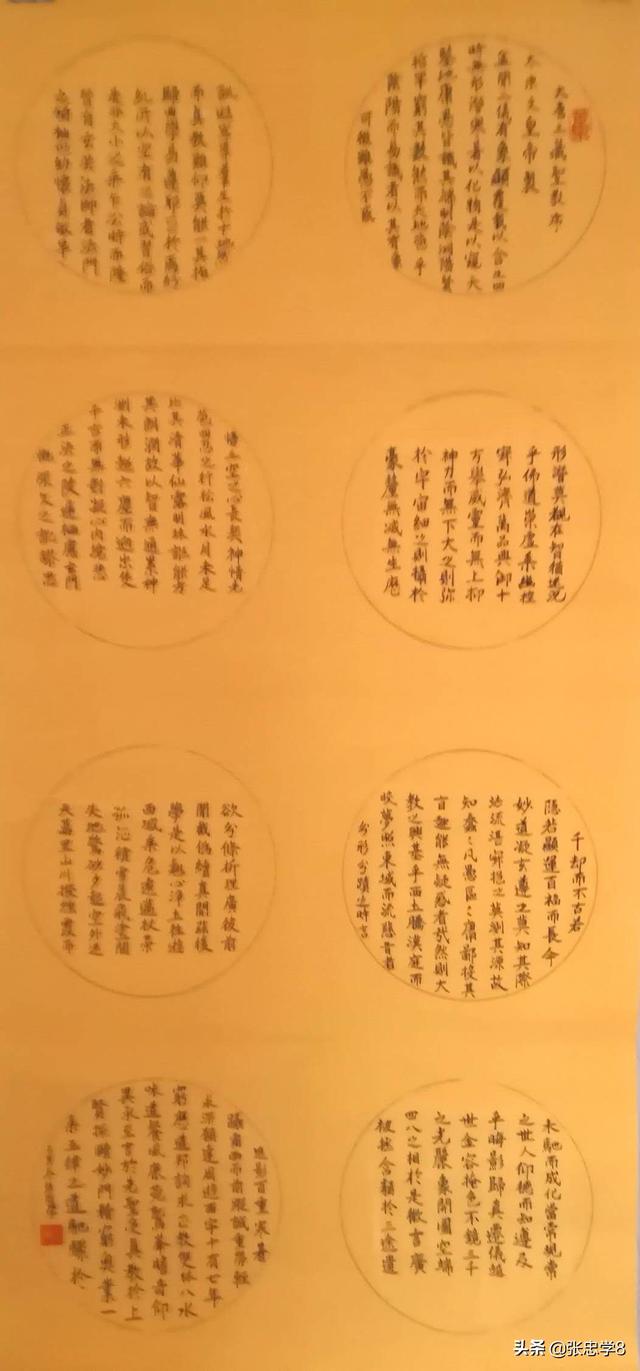 大唐三藏聖教序
太宗文皇帝製
蓋聞二儀有象顯覆載以含生四
時無形潛寒暑以化物是以窺天
鑒地庸愚皆識其端明陰洞陽賢
哲罕窮其數然而天地苞乎
陰陽而易識者以其有象
可徵雖愚不惑
形潛莫覩在智猶迷況
乎佛道崇虛乘幽控
寂弘濟萬品典御十
方舉威靈而無上抑
神力而無下大之則彌
於宇宙細之則攝於
豪釐無滅無生歷
千劫而不古若
隱若顯運百福而長今
妙道凝玄遵之莫知其際
法流湛寂挹之莫測其源故
知蠢〻凡愚區〻庸鄙投其
旨趣能無疑惑者哉然則大
教之興基乎西土騰漢庭而
皎夢照東域而流慈昔者
分形分蹟之時言
未馳而成化當常現常
之世人仰德而知遵及
乎晦影歸真遷儀越
世金容掩色不鏡三千
之光麗象開圖空端
四八之相於是微言廣
被拯含類於三途遺
訓遐宣導羣生於十地然
而真教難仰莫能一其指
歸曲學易遵邪正於焉紛
糺所以空有之論或習俗而
是非大小之乘乍沿時而隆
替有玄奘法師者法門
之領袖也幼懷貞敏早
悟三空之心長契神情先
苞四忍之行松風水月未足
比其清華仙露明珠詎能方
其朗潤故以智無通累神
測未形超六塵而迥出隻
千古而無對凝心內境悲
正法之陵遲栖慮玄門
慨深文之訛謬思
欲分條析理廣彼前
聞截偽續真開茲後
學是以翹心淨土往遊
西域乘危遠邁杖策
孤征積雪晨飛塗間
失地驚砂夕起空外迷
天萬里山川撥煙霞而
進影百重寒暑
躡霜雨而前蹤誠重勞輕
求深願達周遊西宇十有七年
窮歷道邦詢求正教雙林八水
味道餐風鹿菀鷲峯瞻奇仰
異承至言於先聖受真教於上
賢探賾妙門精窮奧業一
乘五律之道馳驟於
头条 @张忠学8